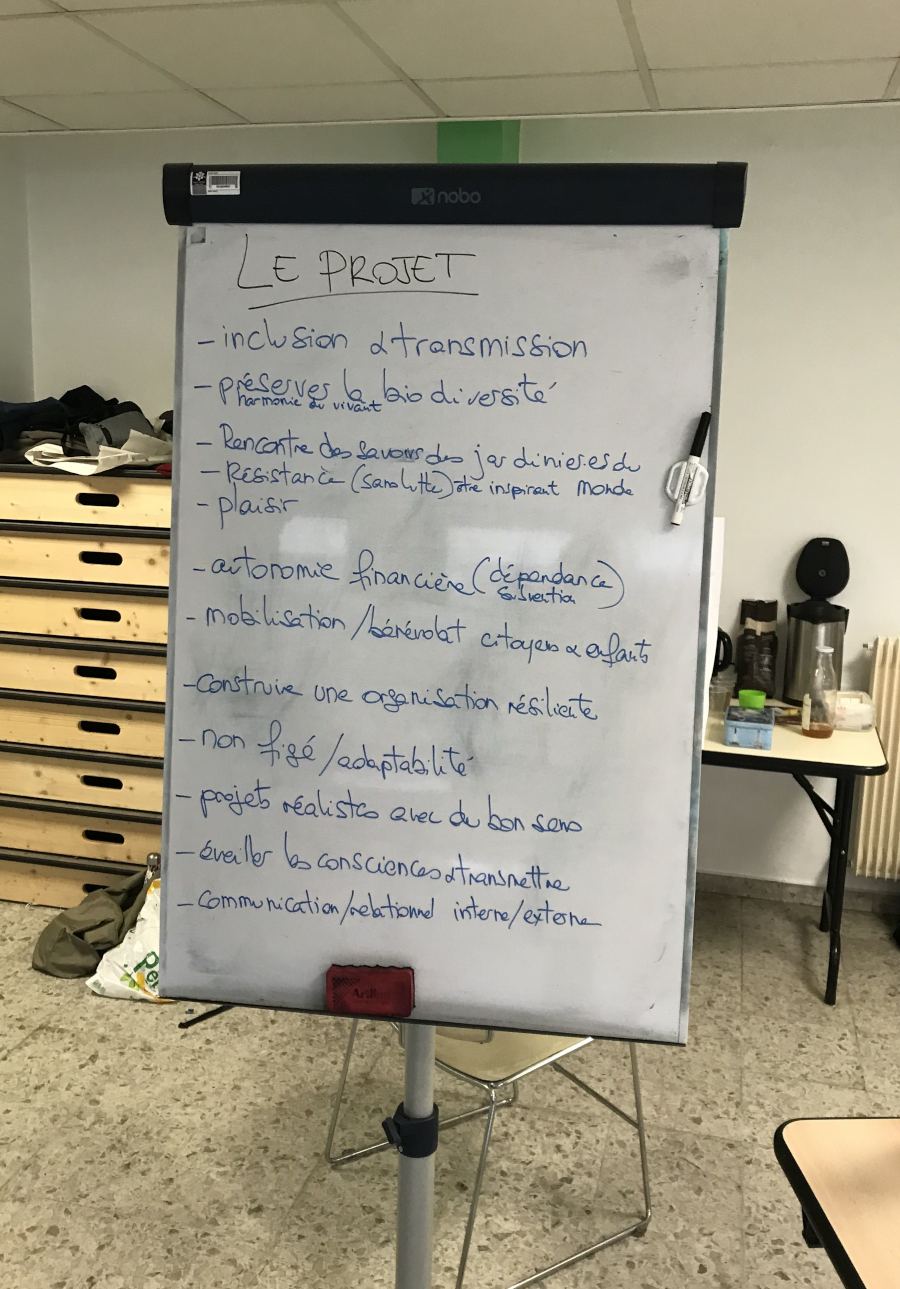 nobo
LE PROJET
- inclusion & transmission
- préserver la biodiversité
harmonie du vivant
- Rencontre des savoirs des jardinier.es du
- Résistance (sans lutte) être inspirant Monde
- plaisir
- autonomie financière (dépendance
subvention)
- mobilisation / bénévolat citoyens & enfants
- construire une organisation résiliente
- non figé / adaptabilité
- projets réalistes avec du bon sens
- éveiller les consciences & transmettre
- communication/relationnel interne/externe